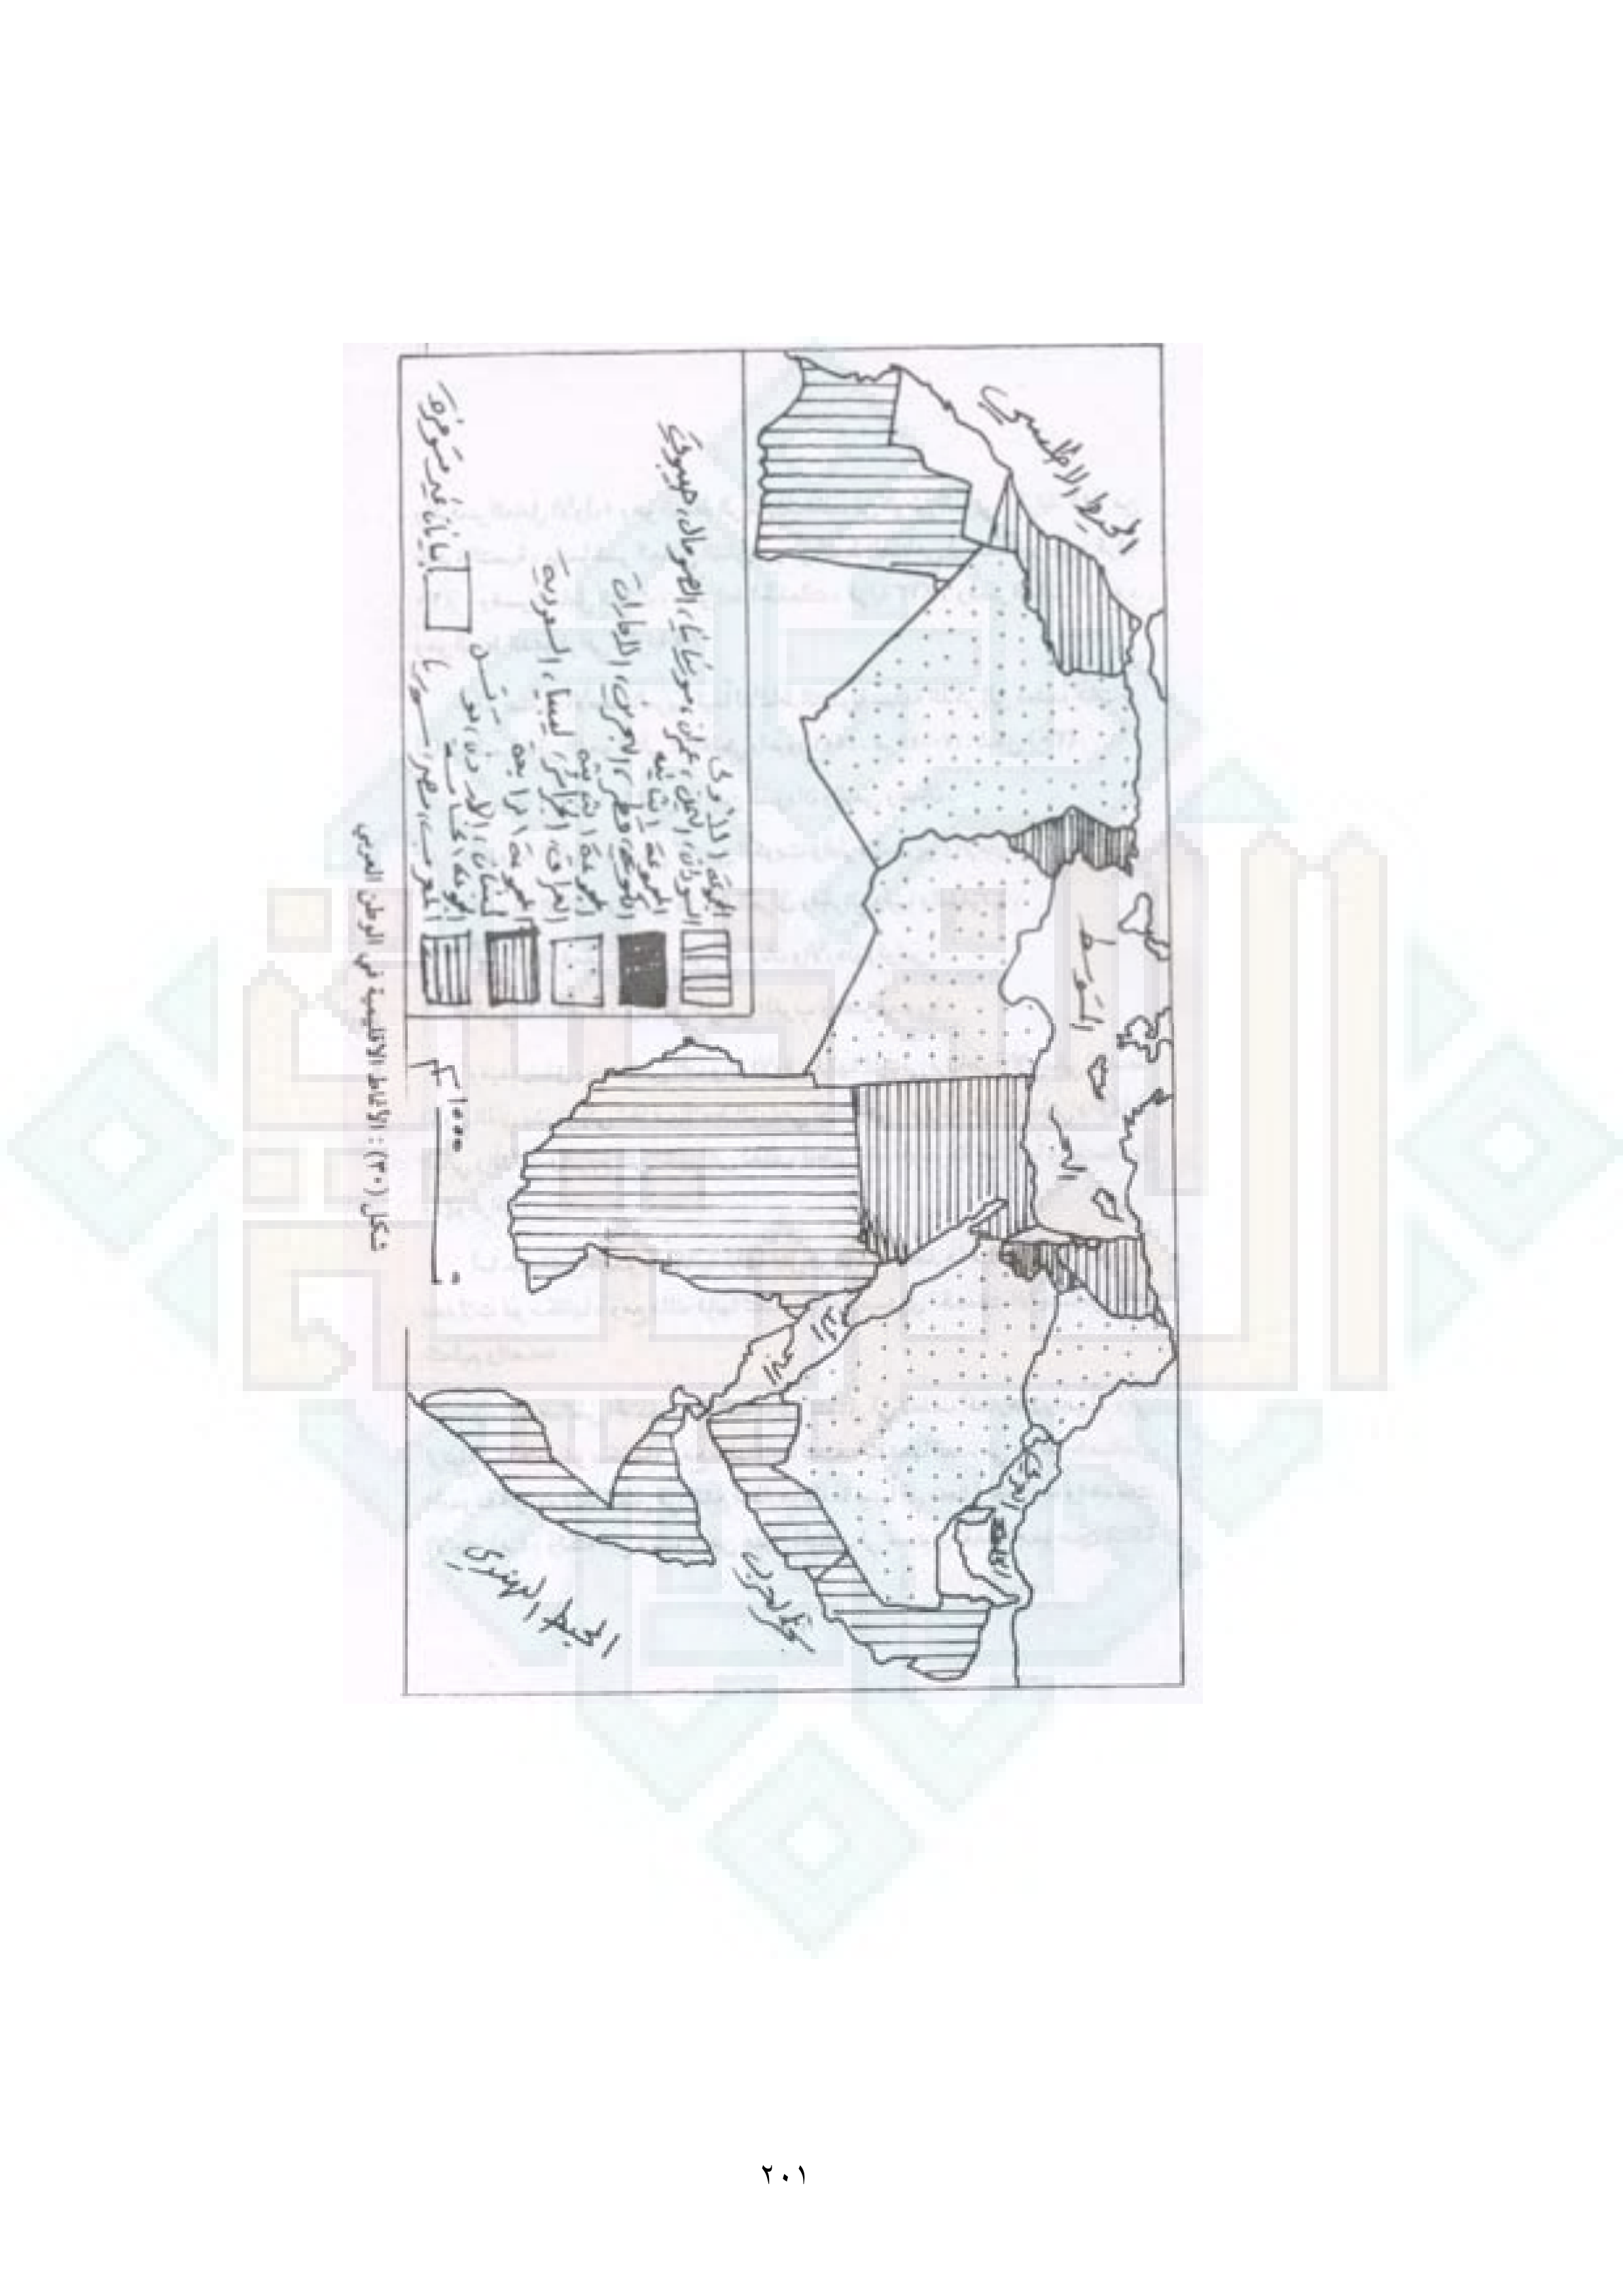 المحيط الأطلسي
المتوسط
البحر
البحر
الأحمر
الخليج
العربي
بحر العرب
المحيط الهندي
المجموعة الأولى
السودان، اليمن، عمان، موريتانيا، الصومال، جيبوتي
المجموعة الثانية
الكويت، قطر، البحرين، الامارات
المجموعة الثالثة
العراق، الجزائر، ليبيا، السعودية
المجموعة الرابعة
لبنان، الاردن، تونس
المجموعة الخامسة
المغرب، مصر، سوريا
بيانات غير متوفرة
٠ ١٠٠٠ كم
شكل (٣٠): الأنماط الاقليمية في الوطن العربي
٢٠١